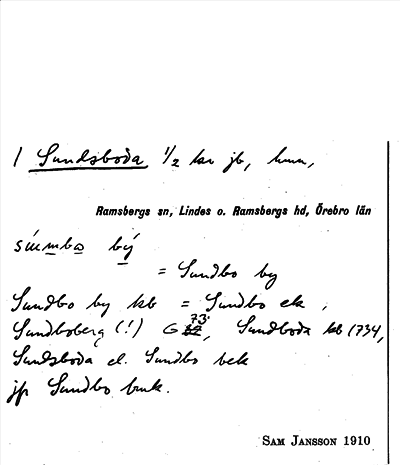 1 Sundsboda 1/2 kr jb, hmn,
Ramsbergs sn, Lindes o. Ramsbergs hd, Örebro län
súmba bý
= Sundbo by
Sundbo by kb = Sundbo ek,
Sundboberg (!) G 73, Sundboda kb 1734,
Sundsboda el. Sundbo bek
jfr Sundbo bruk.
SAM JANSSON 1910